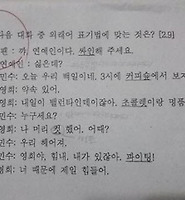 다음 대화 중 외래어 표기법에 맞는 것은? [2점]
팬 : 꺅, 연예인이다. 싸인해 주세요.
연예인 : 싫은데?
민수: 오늘 우리 백일이네. 3시에 커피숖에서 보자
영희: 약속 있어.
영희: 내일이 발린타인데이잖아. 초콜렛이랑 명품
민수: 누구세요?
영희: 나 머리 컷 했어. 어때?
민수: 우리 헤어져.
민수: 영희야, 힘내. 내가 있잖아. 파이팅!
영희: 너 때문에 제일 힘들어.